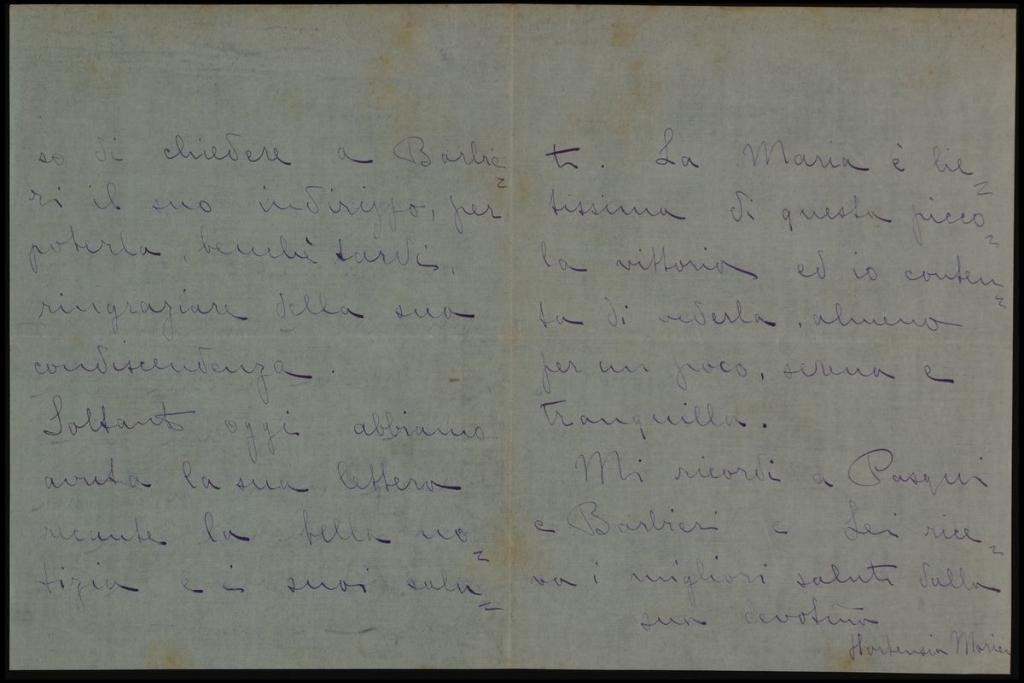 so di chiedere a Barbie=
ri il suo indirizzo, per
poterla, benchè tardi,
ringraziare della sua
condiscendenza.
Soltanto oggi abbiamo
avuta la sua lettera
recante la bella no=
tizia e i suoi salu=
ti. La Maria è lie=
tissima di questa picco=
la vittoria ed io conten=
ta di vederla, almeno
per un poco, serena e
tranquilla.
Mi ricordi a Pasqui
e Barbieri e Lei rice=
va i migliori saluti dalla
sua devotma
Hortensia